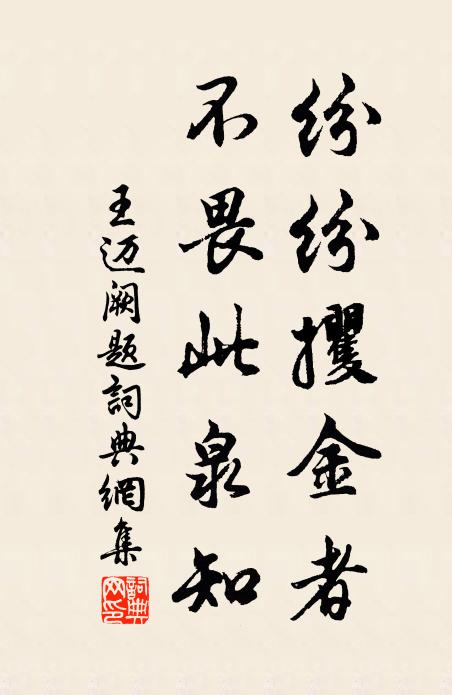 纷纷攫金者
不畏此泉知
王迈阙题詞典網集
詞典網印